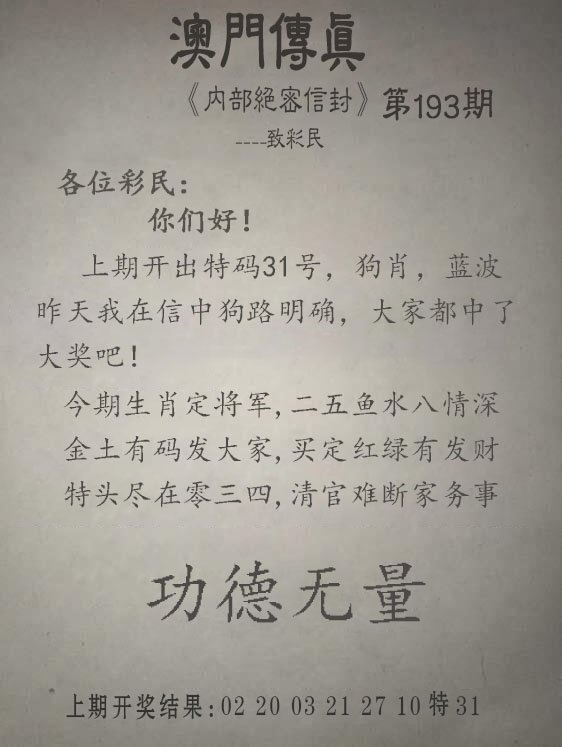 澳門傳真
《内部絕密信封》第193期
----致彩民
各位彩民：
你们好！
上期开出特码31号，狗肖，蓝波
昨天我在信中狗路明确，大家都中了
大奖吧！
今期生肖定将军,二五鱼水八情深
金土有码发大家,买定红绿有发财
特头尽在零三四,清官难断家务事
功德无量
上期开奖结果:02 20 03 21 27 10特31